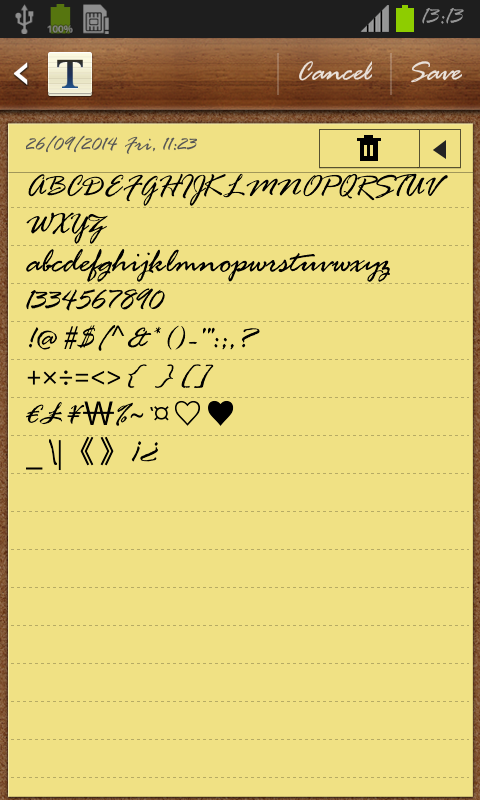 100%
13:13
T
Cancel
Save
26/09/2014 Fri, 11:23
ABCDEFGHIJKLMNOPQRSTUV
WXYZ
abcdefghijklmnopwrstuvwxyz
1334567890
!@#$/^&*()-'":;,?
+×÷=<>{ }[]
€£¥₩%~`¤♡♥
_\|《》¡¿